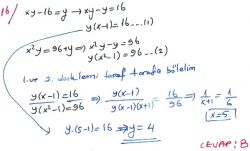 16/ xy-16=y → xy-y=16
y(x-1)=16...(1)
x²y=96+y ⇒ x²y-y=96
y(x²-1)=96...(2)
1. ve 2. denklemi taraf tarafa bölelim
y(x-1)=16 / y(x²-1)=96 ⇒ y(x-1) / y(x-1)(x+1) = 16/96 ⇒ 1/x+1 = 1/6
x=5
y.(5-1)=16 ⇒ y=4
CEVAP: B